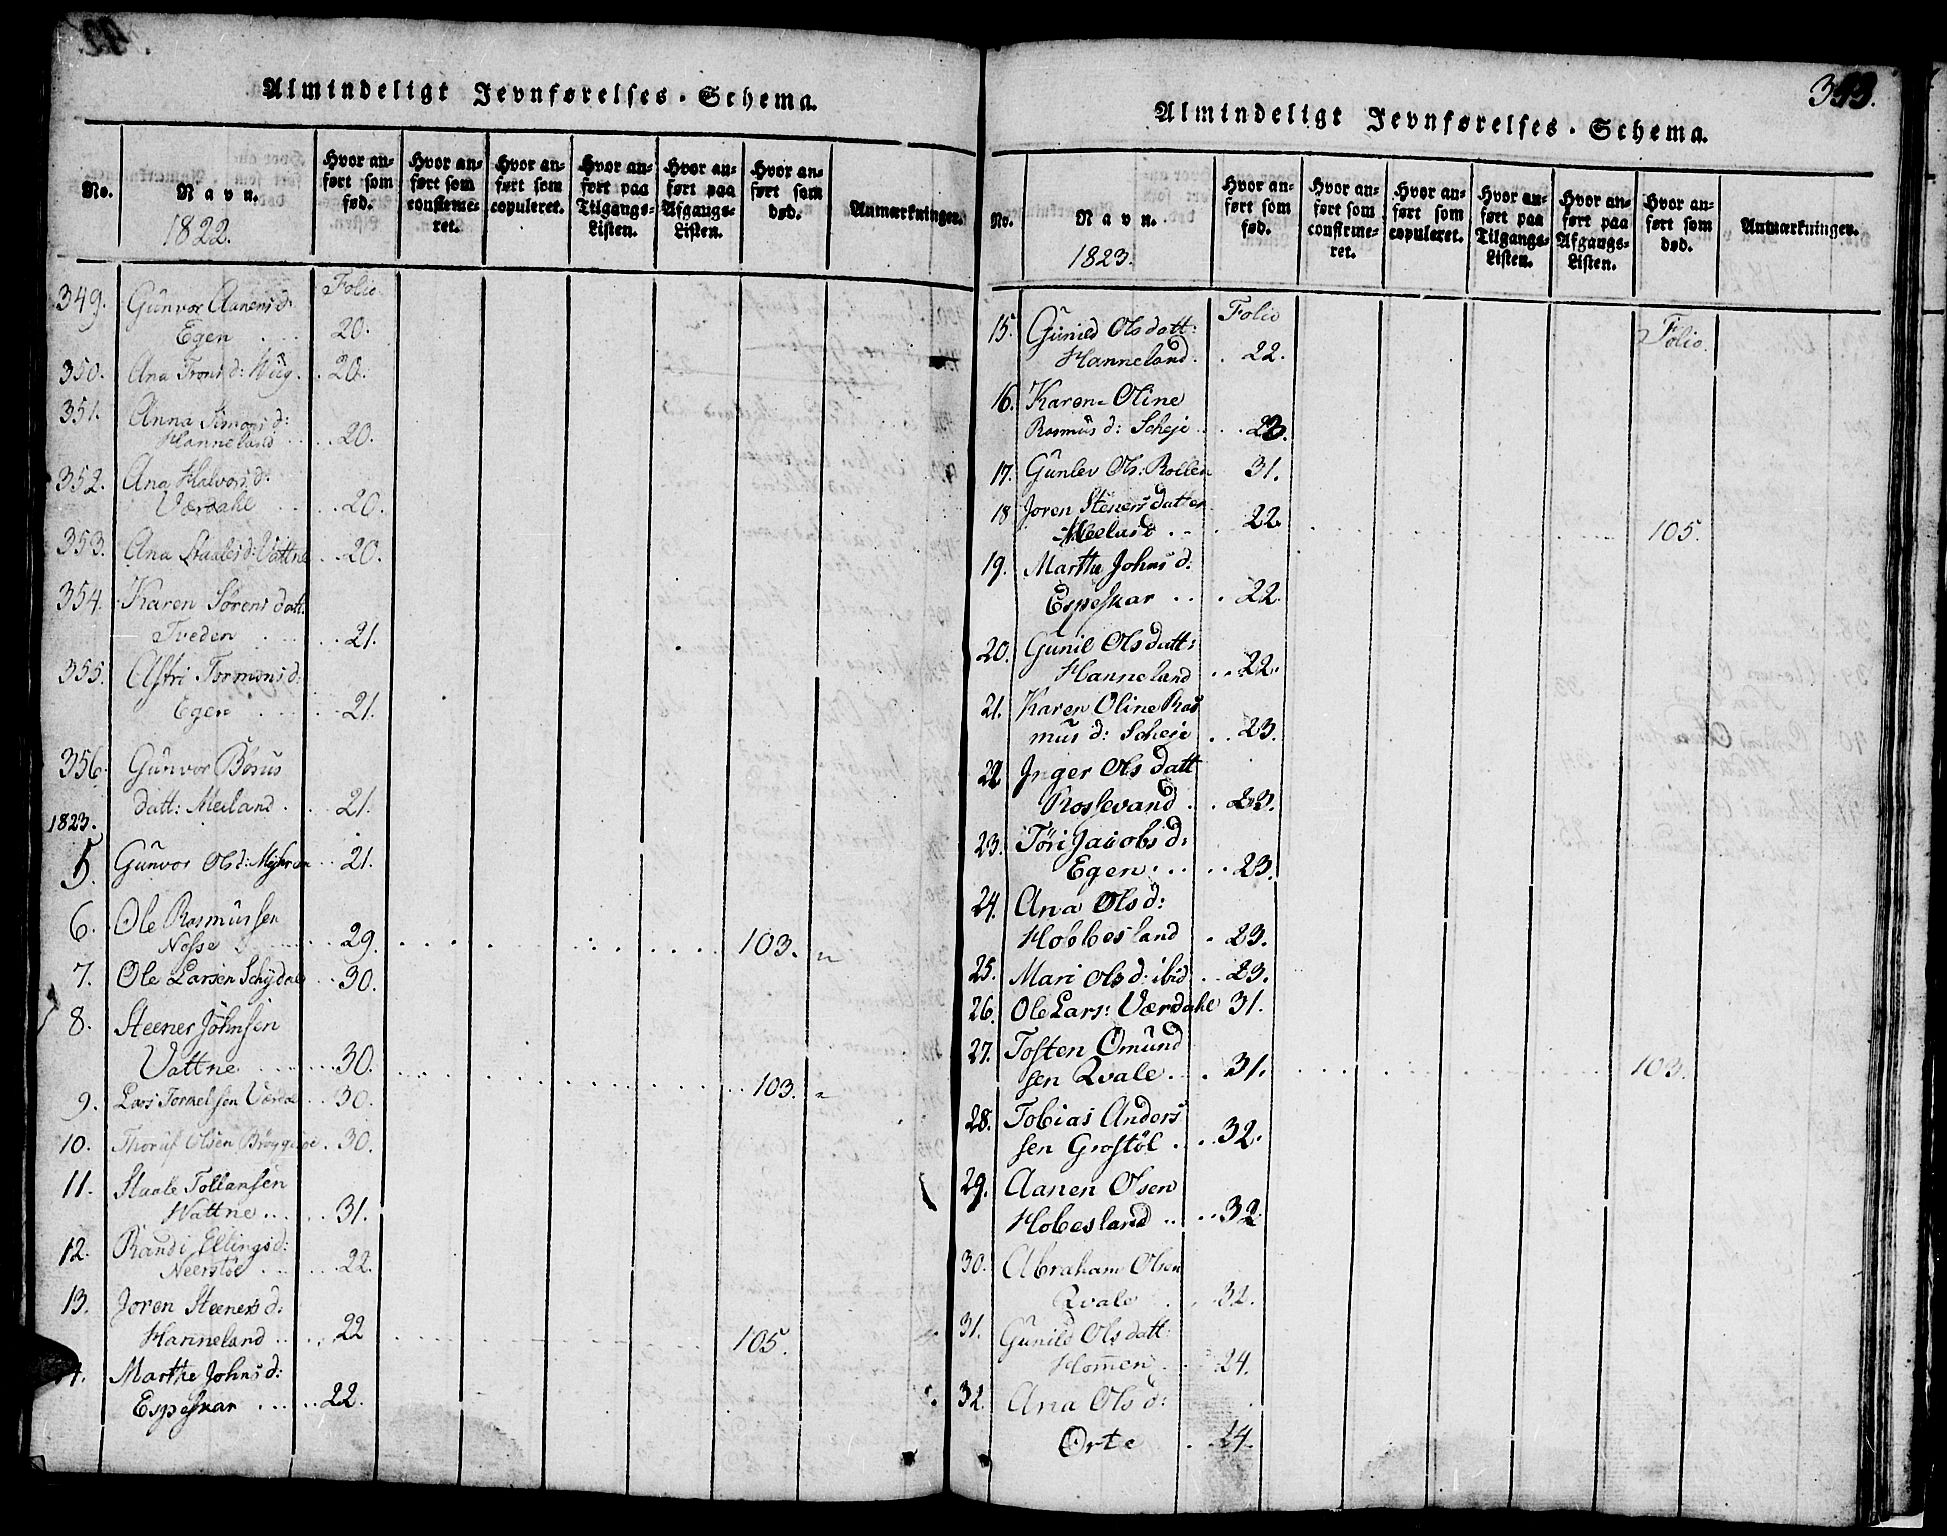 Almindeligt Jevnførelses-Schema.
No.
Navn.
1822.
Hvor anført som fød.
Hvor anført som confirmeret.
Hvor anført som copuleret.
Hvor anført paa Tilgangs-Listen.
Hvor anført paa Afgangs-Listen.
Hvor anført som død.
Anmærkninger.
Folio.
349. Gunvor Aanensd:
Egen ... 20.
350. Ana Tronsd: Hüg . . 20.
351. Anna Simonsd:
Hanneland .. .. 20.
352. Ana Halvorsd:
Værdahl .. 20.
353. Ana Staalesd: Vattne .. 20.
354. Karen Sörensdatt:
Tveden .. 21.
355. Astri Tormonsd:
Egen .. 21.
356. Gunvor
datt: Meiland . . . 21.
1823.
5. Gunvor Olsd: .. 21.
6. Ole Rasmussen
Nosse .. 29. 103.
7. Ole Larsen .. 30.
8. Steener Johnsen
Vattne .. 30. 103.
9. Lars Torkelsen .. 30.
10. Olsen . 30.
11. Staale Tollansen
Wattne .. 31.
12. Randi Ellingsd:
.. 22.
13. Joren Steenersd:
Hanneland .. .. 22 105.
Marthe Johnsd:
Espeskar .. 22.
393.
Almindeligt Jevnførelses-Schema.
No.
Navn.
1823.
Hvor anført som fød.
Hvor anført som confirmeret.
Hvor anført som copuleret.
Hvor anført paa Tilgangs-Listen.
Hvor anført paa Afgangs-Listen.
Hvor anført som død.
Anmærkninger.
Folio Folio.
15. Gunild Olsdatt:
Hanneland. . 22.
16. Karen Oline
Rasmusd: Scheje . . 23.
17. Gunlev Ols: Rollen 31.
18 Joren Stenersdatter
Meeland .. . 22. 105.
19. Marthe Johnsd:
Espeskar .. . 22.
20. Gunil Olsdatt:
Hanneland .. 22.
21. Karen Oline Ras
musd: Scheie . . 23.
22 Inger Olsdatt
Rossevand . . 23.
23. Töri Jacobsd:
Egen ... .. 23.
24. Ana Olsd:
Hobbesland . 23.
25. Mari Olsd: ibid . . 23.
26. Ole Lars: Værdahl 31.
27. Tosten Omund
sen Qvale .. . 31. 103.
28. Tobias Anders
sen Grostöl . . . 32.
29. Aanen Olsen
Hobesland .. .. 32.
30. Abraham Olsen
Qvale . . 32.
31. Gunild Olsdatt:
Homen .. 24.
32. Ana Olsd:
Orte . 24.